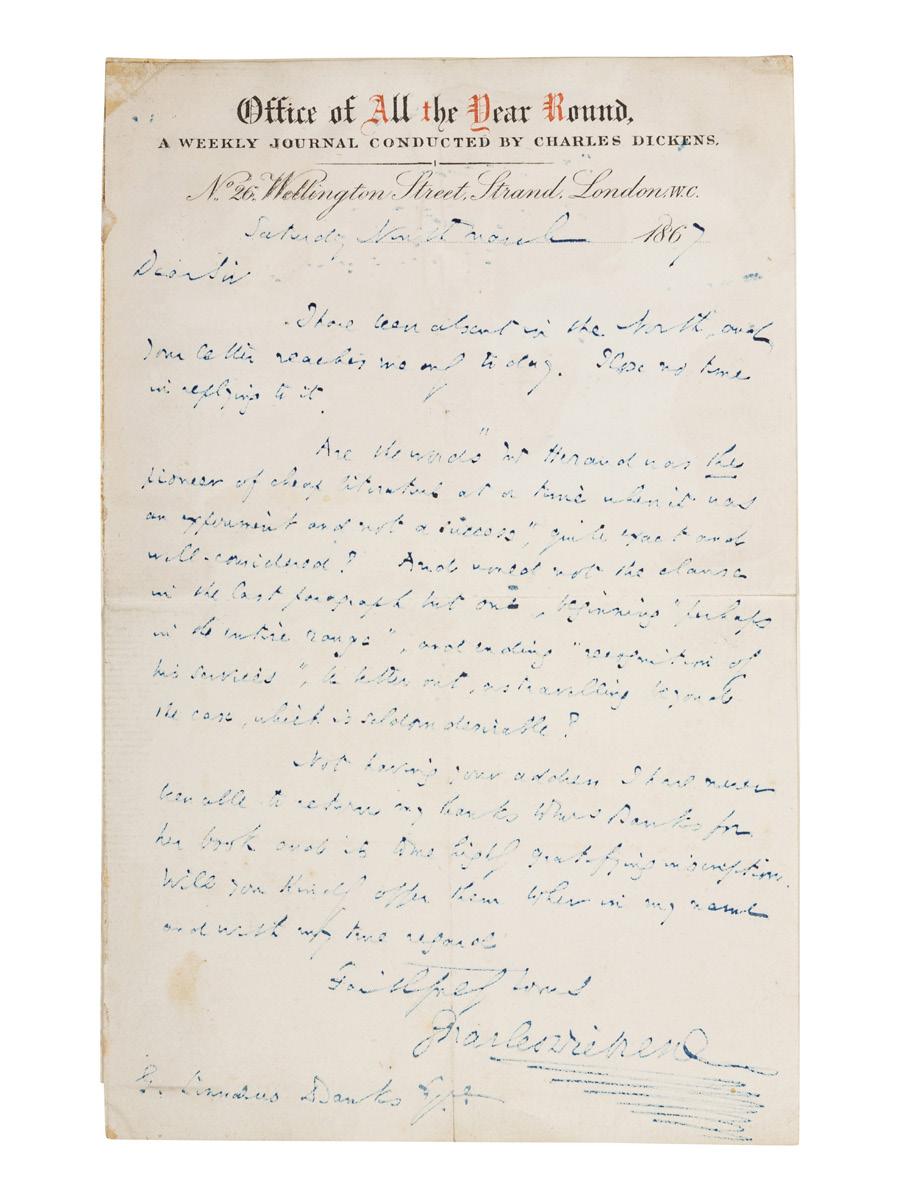 Office of All the Year Round,
A WEEKLY JOURNAL CONDUCTED BY CHARLES DICKENS.
No. 26, Wellington Street, Strand, London. W.C.
Saturday Ninth March 1867
Dear Sir
I have been absent in the North, and
your letter reaches me only to day. I lose no time
in replying to it.
Are the words "but Heraud was the
pioneer of cheap literature at a time when it was
an experiment and not a success", quite exact and
well-considered? And would not the clause
in the last paragraph but one, beginning "perhaps
in the entire range", and ending "recognition of
his services", be better out, as travelling beyond
the case, which is seldom desirable?
Not having your address I have never
been able to return my thanks to Mrs Banks for
her book and its to me highly gratifying inscription.
Will you kindly offer them to her in my name
and with my true regard
Faithfully Yours
Charles Dickens
G. Linnaeus Banks Esqre